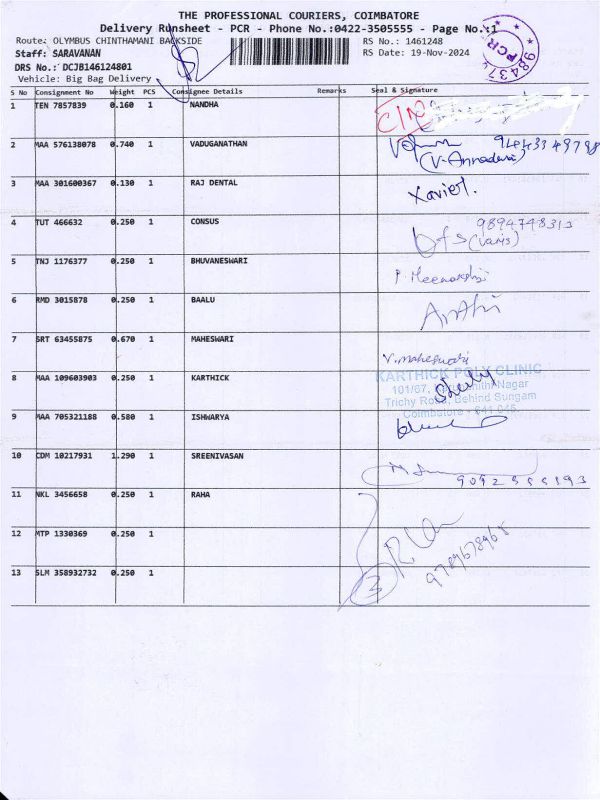 THE PROFESSIONAL COURIERS, COIMBATORE
Delivery Runsheet - PCR - Phone No.:0422-3505555 - Page No.:1
Route: OLYMBUS CHINTHAMANI BACKSIDE
RS No.: 1461248
Staff: SARAVANAN
RS Date: 19-Nov-2024
DRS No.: DCJB146124801
Vehicle: Big Bag Delivery
PCR
S No Consignment No Weight PCS Consignee Details Remarks Seal & Signature
1 TEN 7857839 0.160 1 NANDHA
2 MAA 576138078 0.740 1 VADUGANATHAN
(V. Annadevi)
3 MAA 301600367 0.130 1 RAJ DENTAL Xavier.
4 TUT 466632 0.250 1 CONSUS 9894748313
5 TNJ 1176377 0.250 1 BHUVANESWARI P. Meenakshi
6 RMD 3015878 0.250 1 BAALU
7 SRT 63455875 0.670 1 MAHESWARI
V. maheswari
KARTHICK POLY CLINIC
8 MAA 109603903 0.250 1 KARTHICK
Nagar
Trichy Road, Behind Sungam
Coimbatore - 641 045.
9 MAA 705321188 0.580 1 ISHWARYA
10 CDM 10217931 1.290 1 SREENIVASAN
11 NKL 3456658 0.250 1 RAHA
12 MTP 1330369 0.250 1
13 SLM 358932732 0.250 1
3